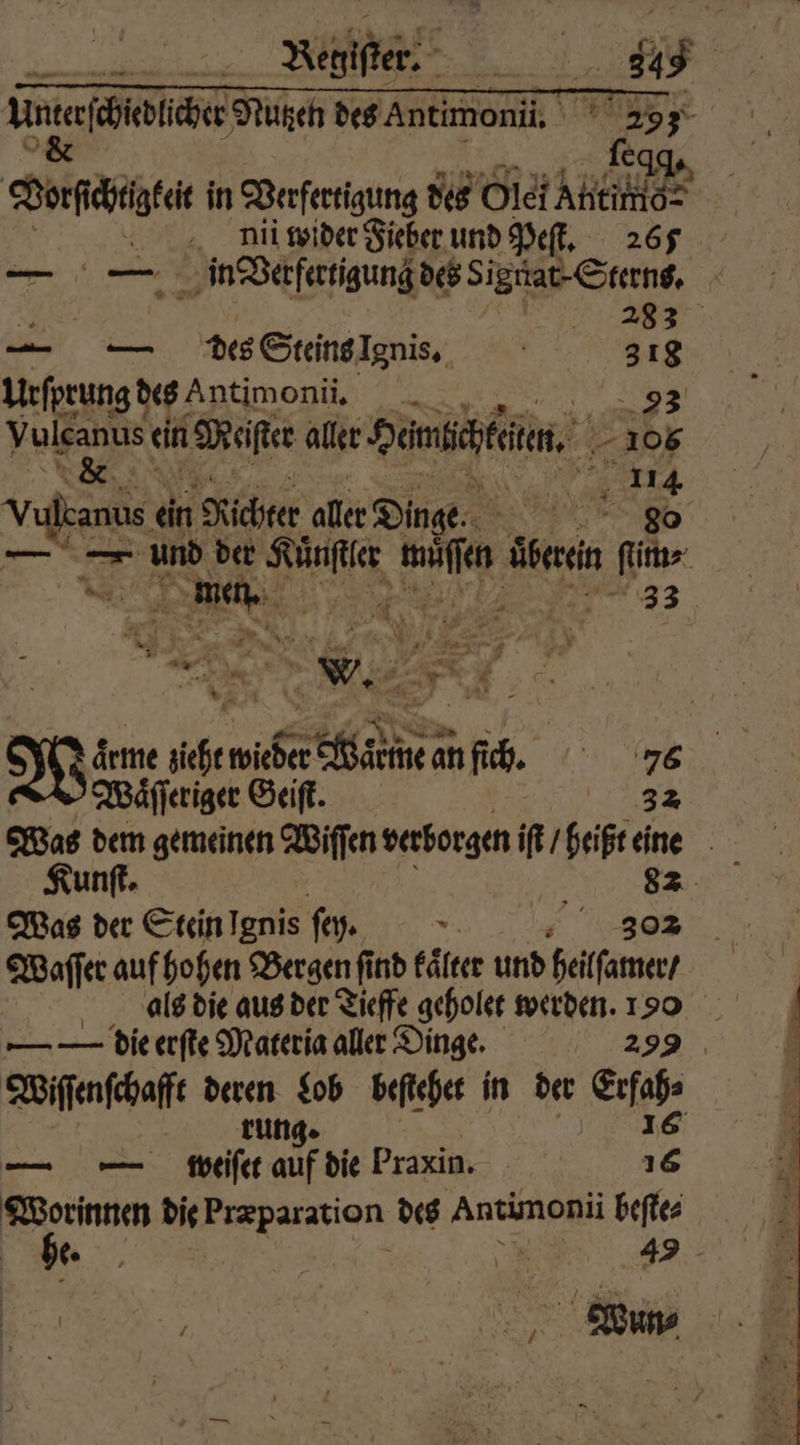 Regiſter. 349
Unterſchiedlicher Nutzen des Antimonii. 293
& ſeqq.
Vorſichtigkeit in Verfertigung des Olei Antimo-
nii wider Fieber und Peſt. 265
— — in Verfertigung des Signat-Sterns.
283
— — des Steins Ignis. 318
Urſprung des Antimonii. 93
Vulcanus ein Meiſter aller Heimlichkeiten. 106
& 114
Vulcanus ein Richter aller Dinge. 80
— — und der Kuͤnſtler muͤſſen uͤberein ſtim-
men. 33
W.
Waͤrme ziehe wieder Waͤrme an ſich. 76
Waͤſſeriger Geiſt. 32
Was dem gemeinen Wiſſen verborgen iſt / heißt eine
Kunſt. 82
Was der Stein Ignis ſey. 302
Waſſer auf hohen Bergen ſind kaͤlter und heilſamer/
als die aus der Tieffe geholet werden. 190
— — die erſte Materia aller Dinge. 299
Wiſſenſchafft deren Lob beſtehet in der Erfah-
rung. 16
— — weiſet auf die Praxin. 16
Worinnen die Præparation des Antimonii beſte-
he. 49
Wun-